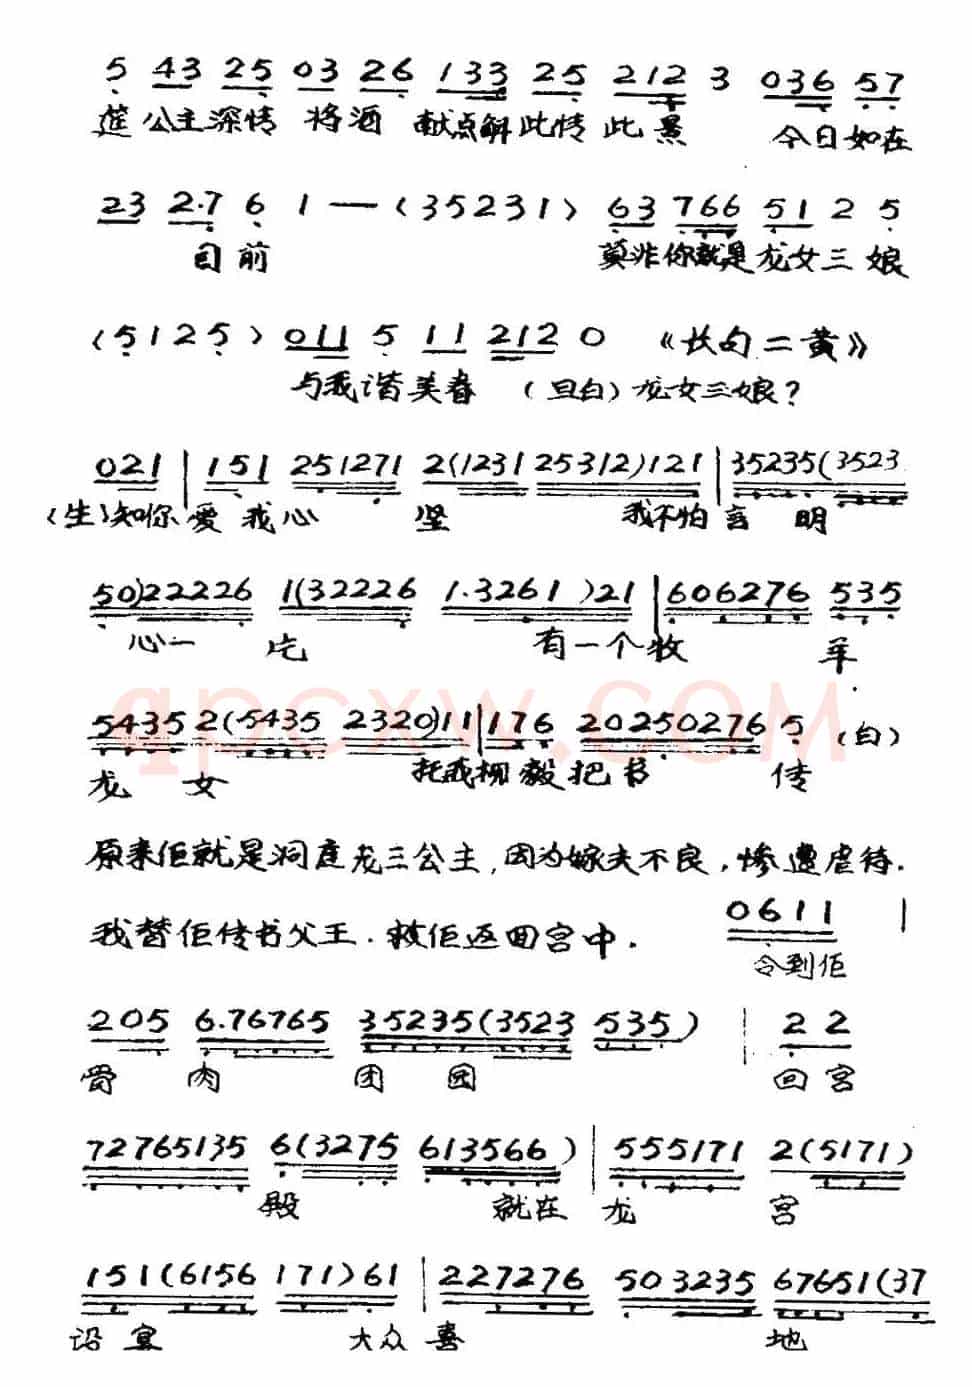 5 43 25 03 26 133 25 212 3 036 57
筵 公主深情 将酒 献点解 此情 此景 今日如在
23 2·7 6 1 — (35231) 63 766 51 2 5
目前 莫非你就是龙女三娘
(5125) 011 5 11 212 0 《长句二黄》
与我谐美眷 (旦白)龙女三娘?
021 | 151 251271 2(1231 25312)121 | 35235(3523
(生)知你 爱我心 坚 我不怕言明
50)22226 1(32226 1·3261)21 | 606276 535
心一 片 有一个牧 羊
5435 2(5435 2320)11 | 176 20250276 5 (白)
龙 女 托我柳毅把书 传
原来佢就是洞庭龙三公主,因为嫁夫不良,惨遭虐待.
我替佢传书父王.救佢返回宫中. 0611 |
令到佢
205 6·76765 35235(3523 535) | 22
骨 肉 团 园 回宫
72765135 6(3275 613566) | 555171 2(5171)
殿 就在 龙 宫
151(6156 171)61 | 227276 503235 67651(37
设宴 大众喜 地
qpcxw.com